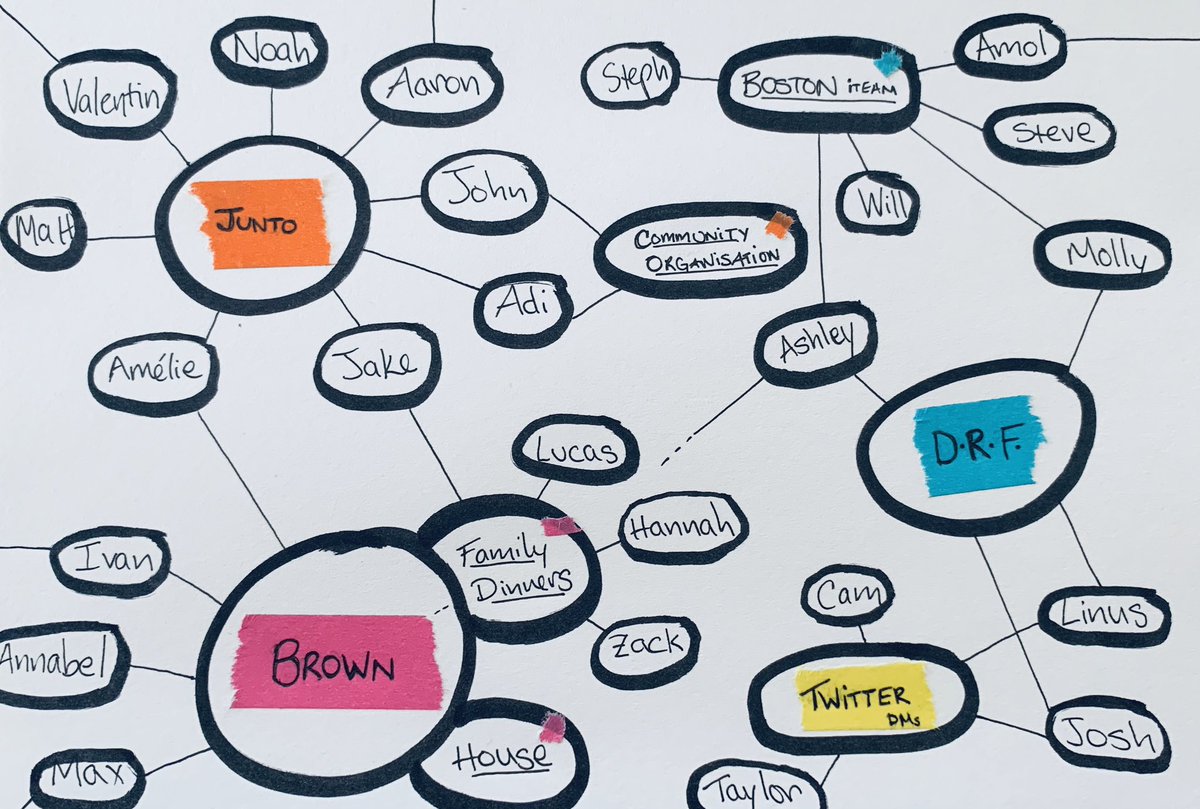 Noah
Valentin
Aaron
Steph
BOSTON iTEAM
Amol
Steve
Matt
JUNTO
John
Will
COMMUNITY
ORGANISATION
Molly
Adi
Ashley
Amélie
Jake
Lucas
D.R.F.
Hannah
Family
Dinners
Ivan
Cam
Linus
Annabel
BROWN
Zack
TWITTER
DMs
Josh
Max
House
Taylor